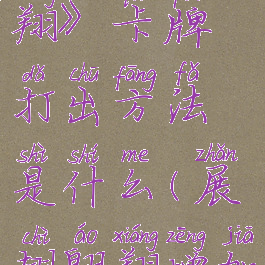 翔》卡牌
dǎ chū fāng fǎ
打出方法
shì shí me zhǎn
是什么(展
chì áo xiáng zēng jiā
翅翱翔增加